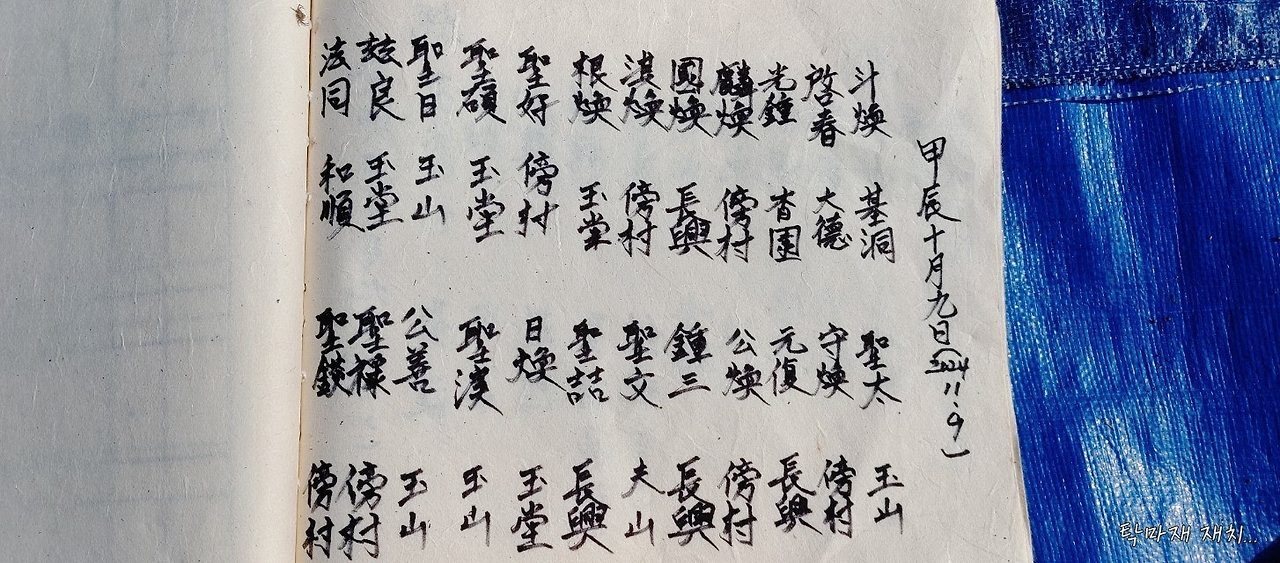 甲辰十月九日(2024 11.9)
斗煥 基洞 聖太 玉山
啓春 大德 守煥 傍村
光鍾 杏園 元復 長興
麟煥 傍村 公煥 傍村
國煥 長興 鍾三 長興
淇煥 傍村 聖文 夫山
根煥 玉堂 聖喆 長興
聖好 傍村 日煥 玉堂
聖碩 玉堂 聖漢 玉山
聖日 玉山 公善 玉山
玆良 玉堂 聖祿 傍村
法同 和順 聖鎂 傍村
탁마재 재치...